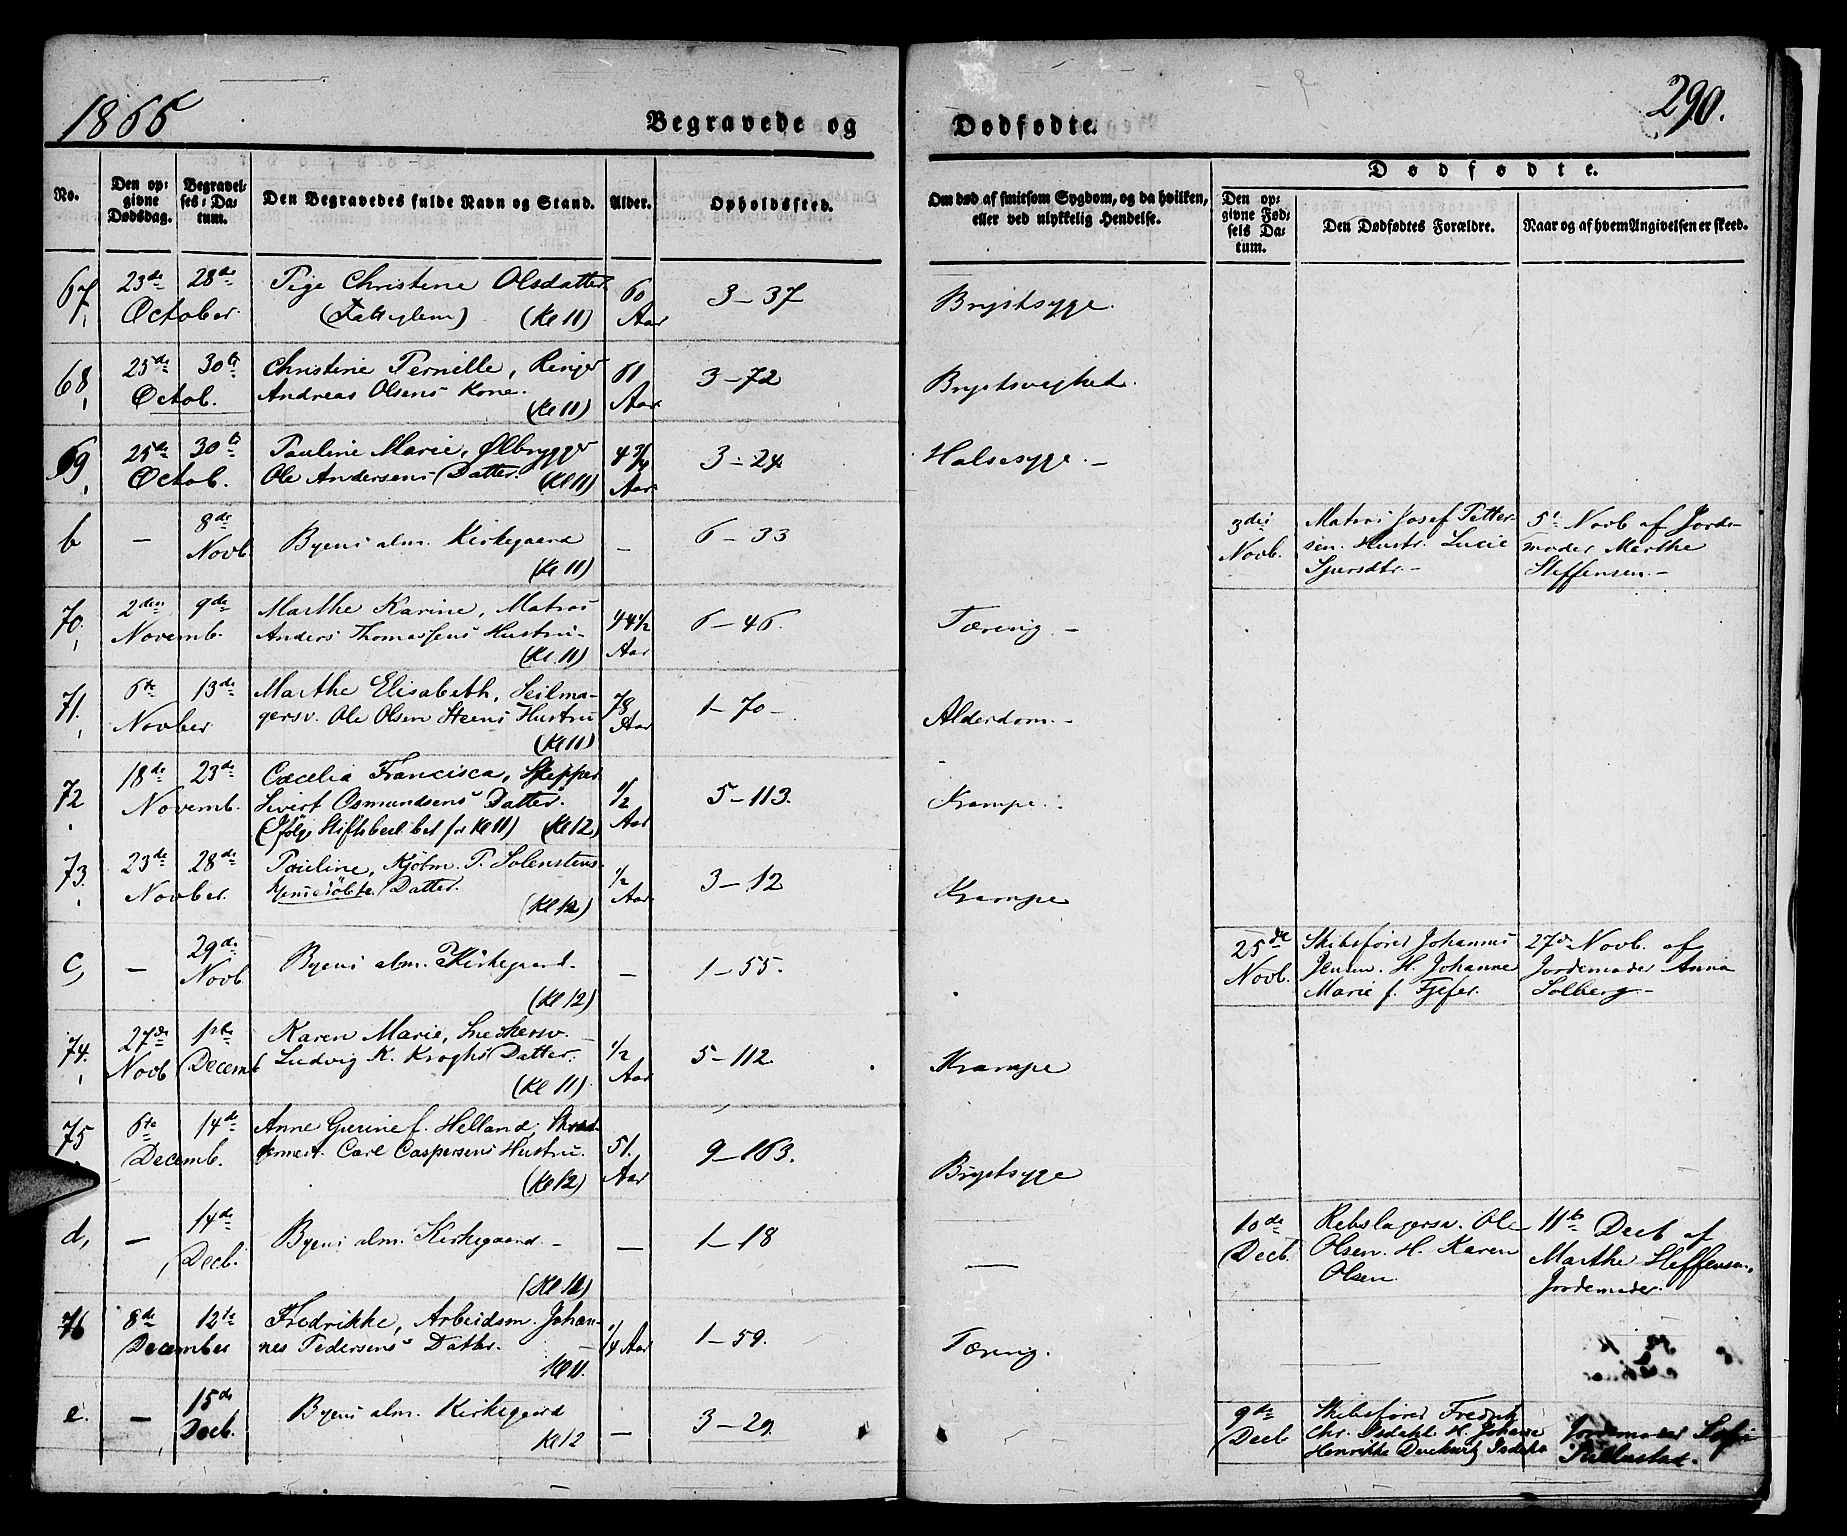 1866
Begravede og
Dødfødte.
290.
No.
Den opgivne Dødsdag.
Begravelses-Datum.
Den Begravedes fulde Navn og Stand.
Alder.
Opholdssted.
Om død af smitsom Sygdom, og da hvilken, eller ved ulykkelig Hendelse.
Dødfødte.
Den opgivne Fødsels Datum.
Den Dødfødtes Forældre.
Naar og af hvem Angivelsen er skeed.
67, 23de 28de Pige Christene Olsdatter 60 3-37 Brystsyge.
October. (Fattiglem) (Kl 11) Aar
68, 25de 30te Christine Pernille, 61 3-72 Brystsvaghed.
Octob. Andreas Olsens Kone. (Kl 11) Aar
69, 25de 30te Pauline Marie, Ølbrygger 4 3/4 3-24. Halssyge.-
Octob. Ole Andersens Datter. (Kl 11) Aar
b - 8de Novb. Byens alm. Kirkegaard (Kl 11) - 6-33
3die Novb. Matros Josef Petter-
sen. Hustr. Lucie
5te Novb af Jorde-
moder Marthe
Steffensen.-
70, 2den 9de Marthe Karine, Matros 44 1/2 6-46. Tæring.-
Novemb. Anders Thomassens Hustru- (Kl. 11) Aar
71, 6te 13de Marthe Elisabeth, Seilma- 78 1-70- Alderdom.-
Novber gersv. Ole Olsen Steens Hustru (Kl 11) Aar
72, 18de 23de Cæcelia Francisca, Skipper 1/2 5-113. Krampe.
Novemb. Sivert Osmundsens Datter. Aar
(Kl 12)
73, 23de 28de Pauline, Kjøbm. P. 1/2 3-12 Krampe
Novber. Datter. (Kl 12) Aar
c, - 29de Novb Byens alm. Kirkegaard. (Kl 12) - 1-55.
25de Novb. Skibsfører Johannes
Jensen. H. Johanne
Marie f.
27de Novb. af
Jordemoder Anna
Solberg-
74, 27de 1ste Karen Marie, Snedkersv. 1/2 5-112. Krampe
Novb Decemb Ludvig K. Kroghs Datter. (Kl 11) Aar
75 6te 14de Anne Gurine f. Helland, 51. 9-163. Brystsyge
Decemb. Carl Caspersens Hustru. (Kl 12) Aar
d, - 14de Decb. Byens alm. Kirkegaard.- - 1-18
10de Decb. Rebslagersv. Ole
Olsen. H. Karen
Olsen
11te Decb af
Marthe Steffensen,
Jordemoder.
76 8de 12te Fredrikke, Arbeidsm. Johan- 1/4 Aar 1-59. Tæring.
December nes Pedersens Datter. Kl 11.
e. - 15de Decb. Byens alm. Kirkegaard Kl 12 - 3-29.
9de Decb Skibsfører Fredrik
Chr. H. Johanne
Henrikke
Jordemoder